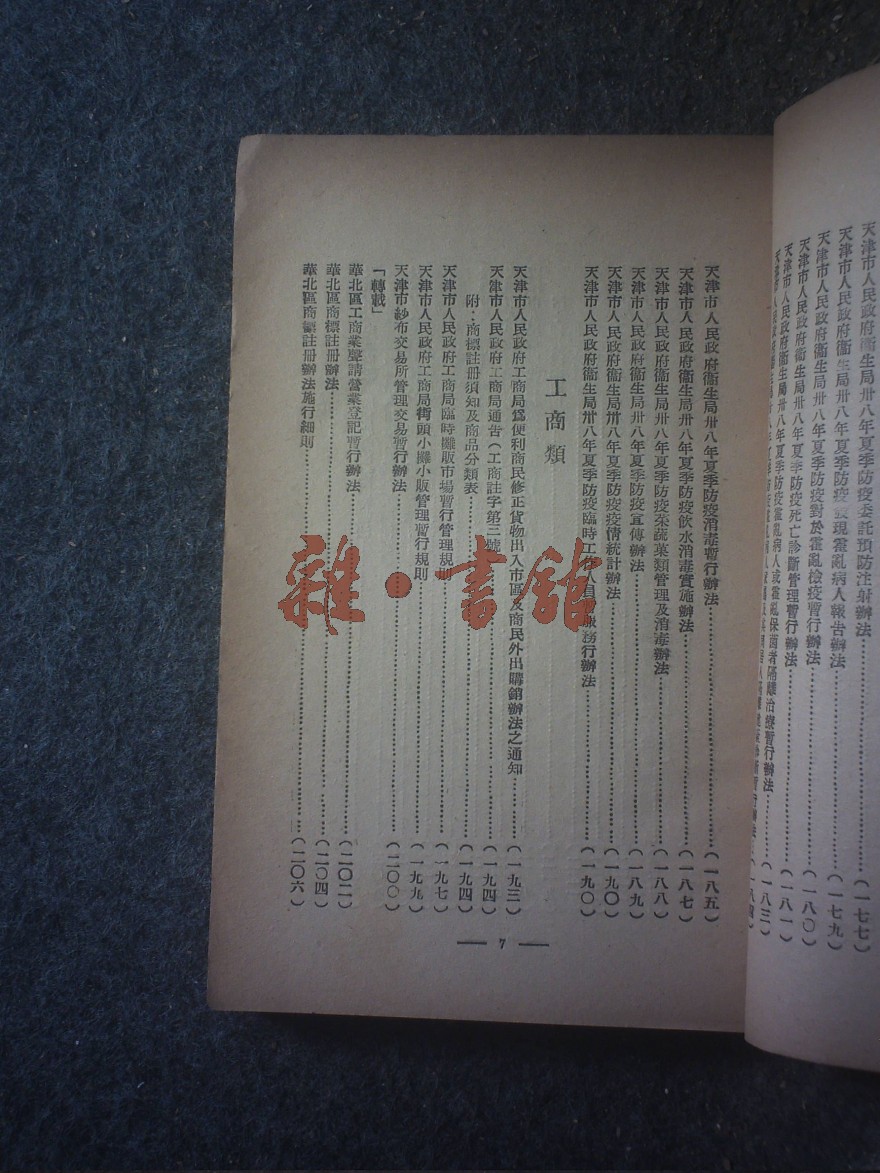 天津市人民政府衞生局卅八年夏季防疫委託預防注射辦法……(一七七)
天津市人民政府衞生局卅八年夏季防疫發現霍亂病人報告辦法……(一七九)
天津市人民政府衞生局卅八年夏季防疫對於霍亂檢疫暫行辦法……(一八〇)
天津市人民政府衞生局卅八年夏季防疫死亡診斷管理暫行辦法……(一八一)
天津市人民政府衞生局卅八年夏季防疫霍亂病人或霍亂保菌者隔離治療暫行辦法……(一八三)
(一八四)
天津市人民政府衞生局卅八年夏季防疫消毒暫行辦法……(一八五)
天津市人民政府衞生局卅八年夏季防疫飲水消毒實施辦法……(一八七)
天津市人民政府衞生局卅八年夏季防疫菜蔬菓類管理及消毒辦法……(一八八)
天津市人民政府衞生局卅八年夏季防疫宣傳辦法……(一八九)
天津市人民政府衞生局卅八年夏季防疫疫情統計辦法……(一九〇)
天津市人民政府衞生局卅八年夏季防疫臨時工作人員服務行辦法……(一九〇)
工商類
天津市人民政府工商局爲便利商民修正貨物出入市區及商民外出購銷辦法之通知……(一九三)
天津市人民政府工商局通告(工商註字第三號)……(一九四)
附:商標註冊須知及商品分類表……(一九四)
天津市人民政府工商局臨時攤販市場暫行管理規則……(一九七)
天津市人民政府工商局街頭小攤小販管理暫行規則……(一九九)
天津市紗布交易所管理交易暫行辦法……(二〇〇)
「轉載」
華北區工商業聲請營業登記暫行辦法……(二〇二)
華北區商標註冊辦法……(二〇四)
華北區商標註冊辦法施行細則……(二〇六)
— 7 —
雜·書館